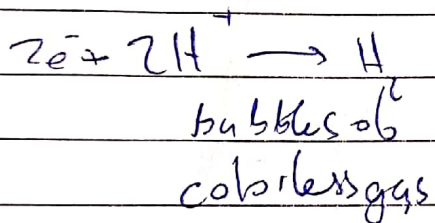 2e⁻ + 2H⁺ ⟶ H₂
bubbles of
colorless gas